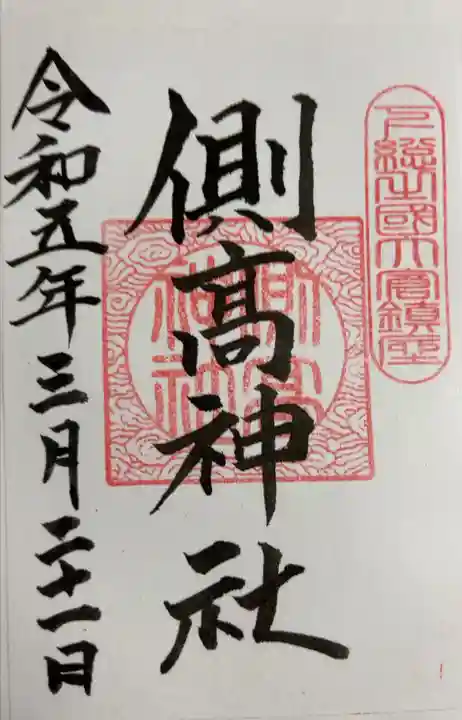 下総之國大倉鎮座
側髙神社
側高神社
令和五年三月二十一日